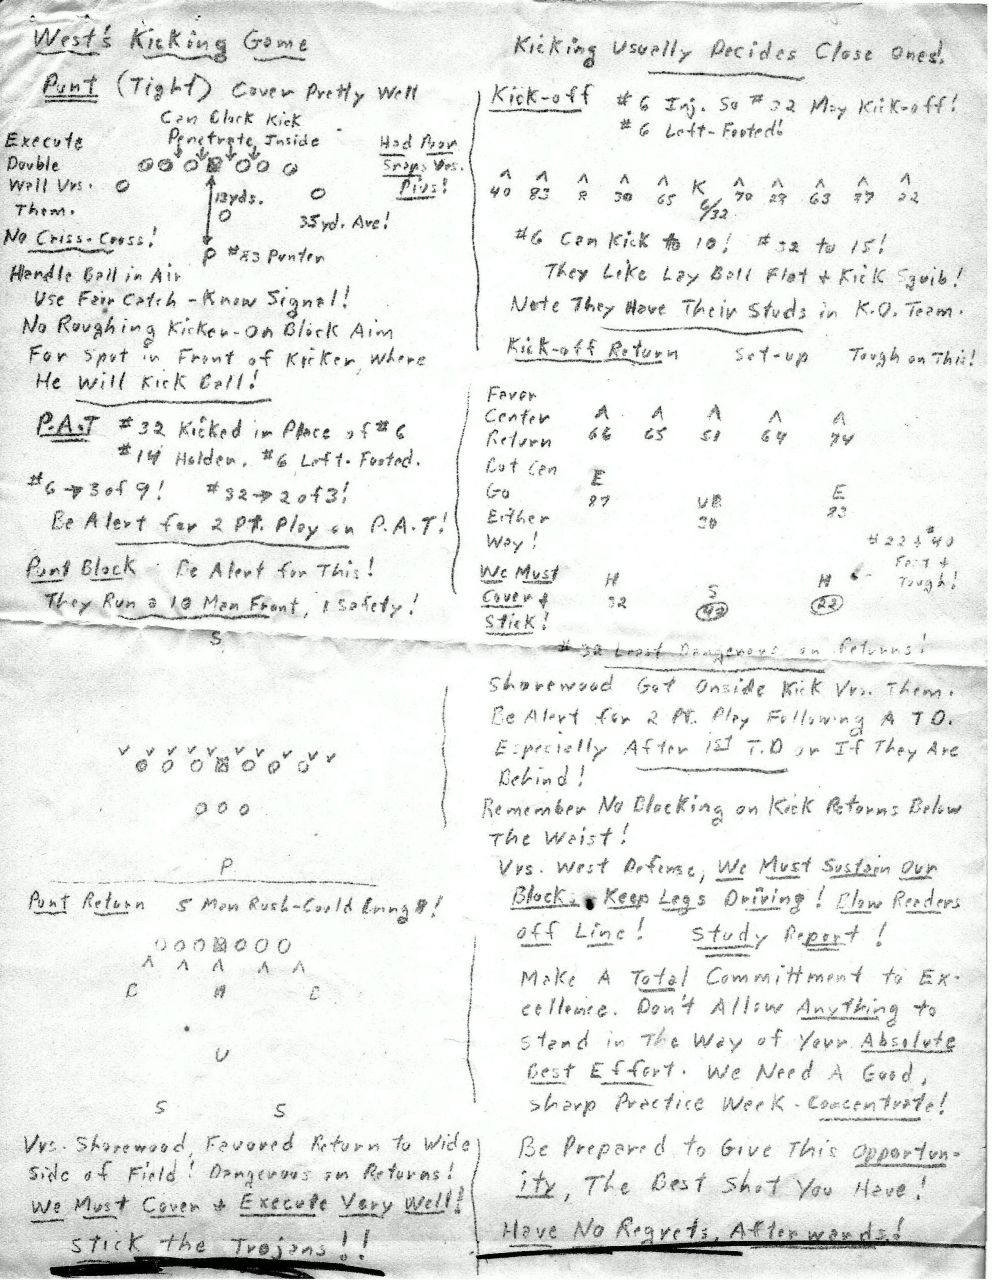 West's Kicking Game
Punt (Tight) Cover Pretty Well
Can Block Kick
Penetrate Inside
Execute
Double
Wall Vrs.
Them.
No Criss-Cross!
Had Poor
Snaps Vrs.
Pius!
13yds.
35yd. Ave!
P #83 Punter
Handle Ball in Air
Use Fair Catch - Know Signal!
No Roughing Kicker - On Block Aim
For Spot in Front of Kicker, Where
He Will Kick Ball!
P.A.T #32 Kicked in Place of #6
#14 Holder. #6 Left-Footed.
#6 → 3 of 9! #32 → 2 of 3!
Be Alert for 2 Pt. Play on P.A.T!
Punt Block Be Alert for This!
They Run a 10 Man Front, 1 Safety!
S
P
Punt Return 5 Man Rush-Could Bring 8!
C M C
U
S S
Vrs. Shorewood, Favored Return to Wide
Side of Field! Dangerous on Returns!
We Must Cover + Execute Very Well!
Stick the Trojans!!
Kicking Usually Decides Close Ones!
Kick-off #6 Inj. So #32 May Kick-off!
#6 Left-Footed!
40 83 8 30 65 K 70 63 22
6/32
#6 Can Kick to 10! #32 to 15!
They Like Lay Ball Flat + Kick Squib!
Note They Have Their Studs in K.O. Team.
Kick-off Return Set-up Tough on This!
Favor
Center
Return
But Can
Go
Either
Way!
We Must
Cover +
Stick!
66 65 51 64 74
E
87
UB
30
E
83
#22 + #40
Fast +
Tough!
H
32
S
H
22
#32 Least Dangerous on Returns!
Shorewood Got Onside Kick Vrs. Them.
Be Alert for 2 Pt. Play Following A TD.
Especially After 1st T.D or If They Are
Behind!
Remember No Blocking on Kick Returns Below
The Waist!
Vrs. West Defense, We Must Sustain Our
Block. Keep Legs Driving! Blow Readers
off Line! Study Report!
Make A Total Committment to Ex-
cellence. Don't Allow Anything to
stand in The Way of Your Absolute
Best Effort. We Need A Good,
Sharp Practice Week - Concentrate!
Be Prepared to Give This Opportun-
ity, The Best Shot You Have!
Have No Regrets, Afterwards!